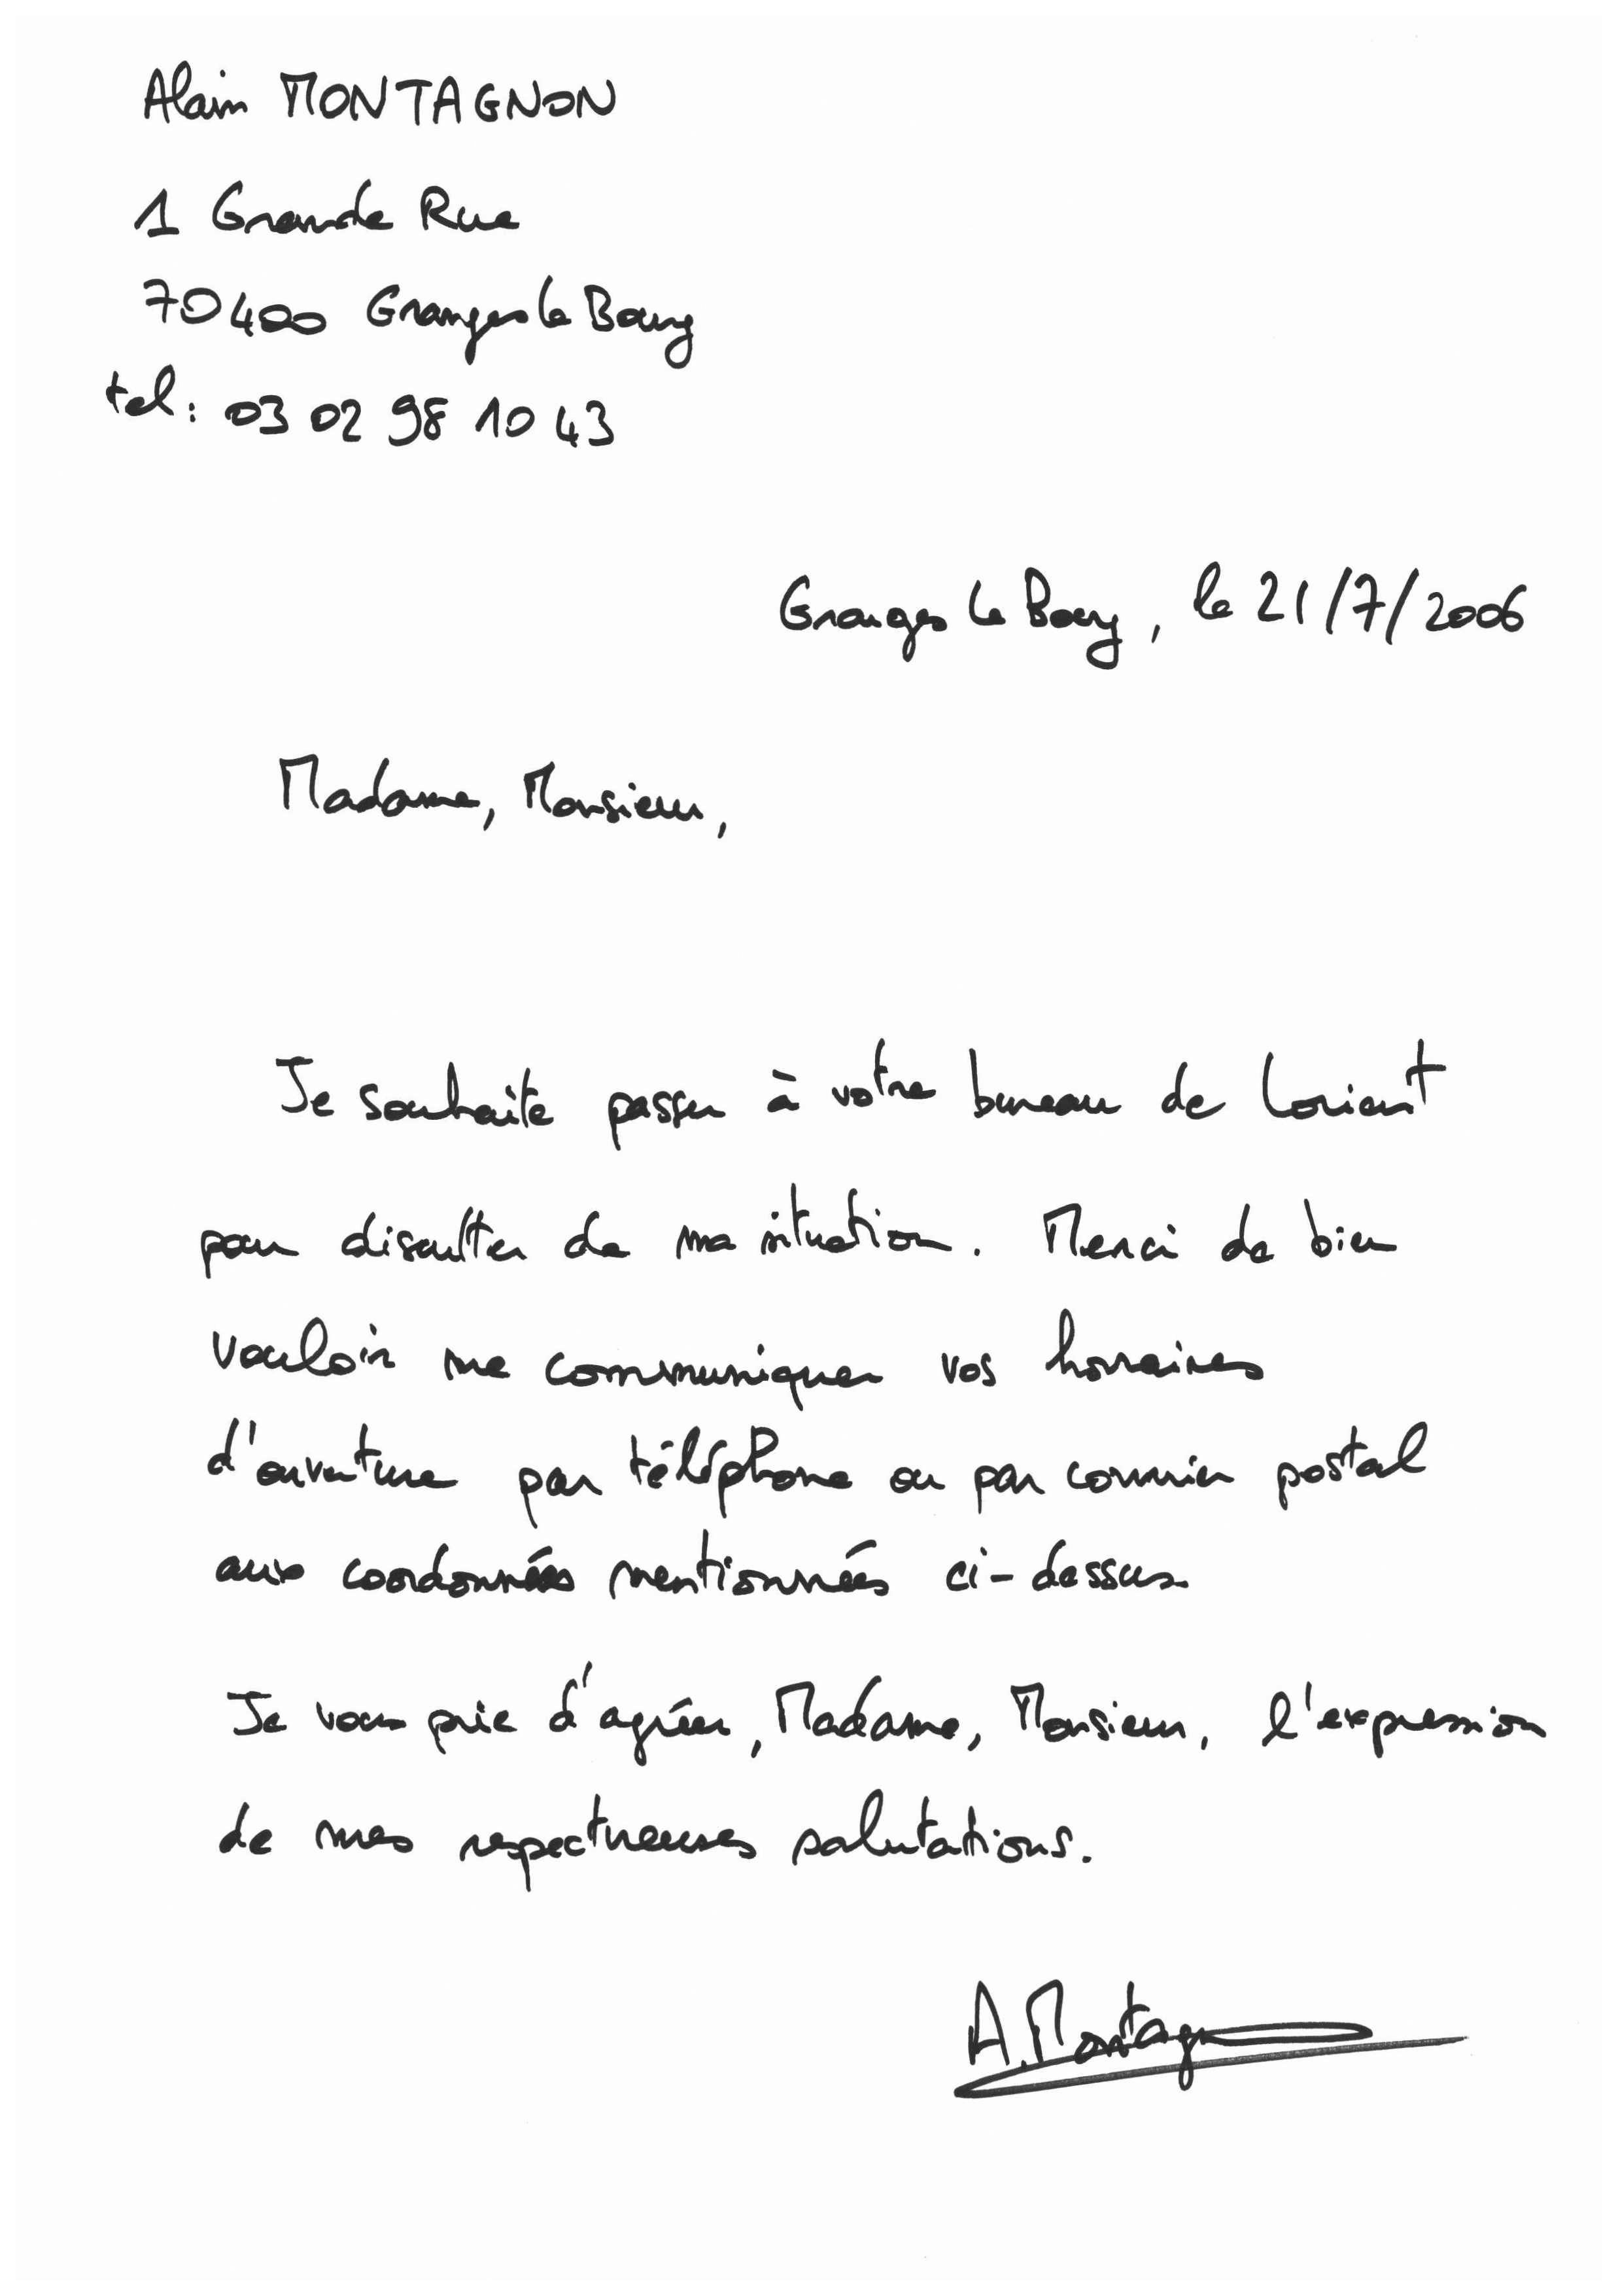 Alain MONTAGNON
1 Grande Rue
70400 Granges le Bourg
tel : 03 02 98 10 43
Granges le Bourg, le 21/7/2006
Madame, Monsieur,
Je souhaite passer à votre bureau de Lorient
pour discutter de ma situation. Merci de bien
vouloir me communiquer vos horraires
d'ouverture par téléphone ou par courrier postal
aux coordonnées mentionnées ci-dessus
Je vous prie d'agréer, Madame, Monsieur, l'expression
de mes respectueuses salutations.
A. Montagnon